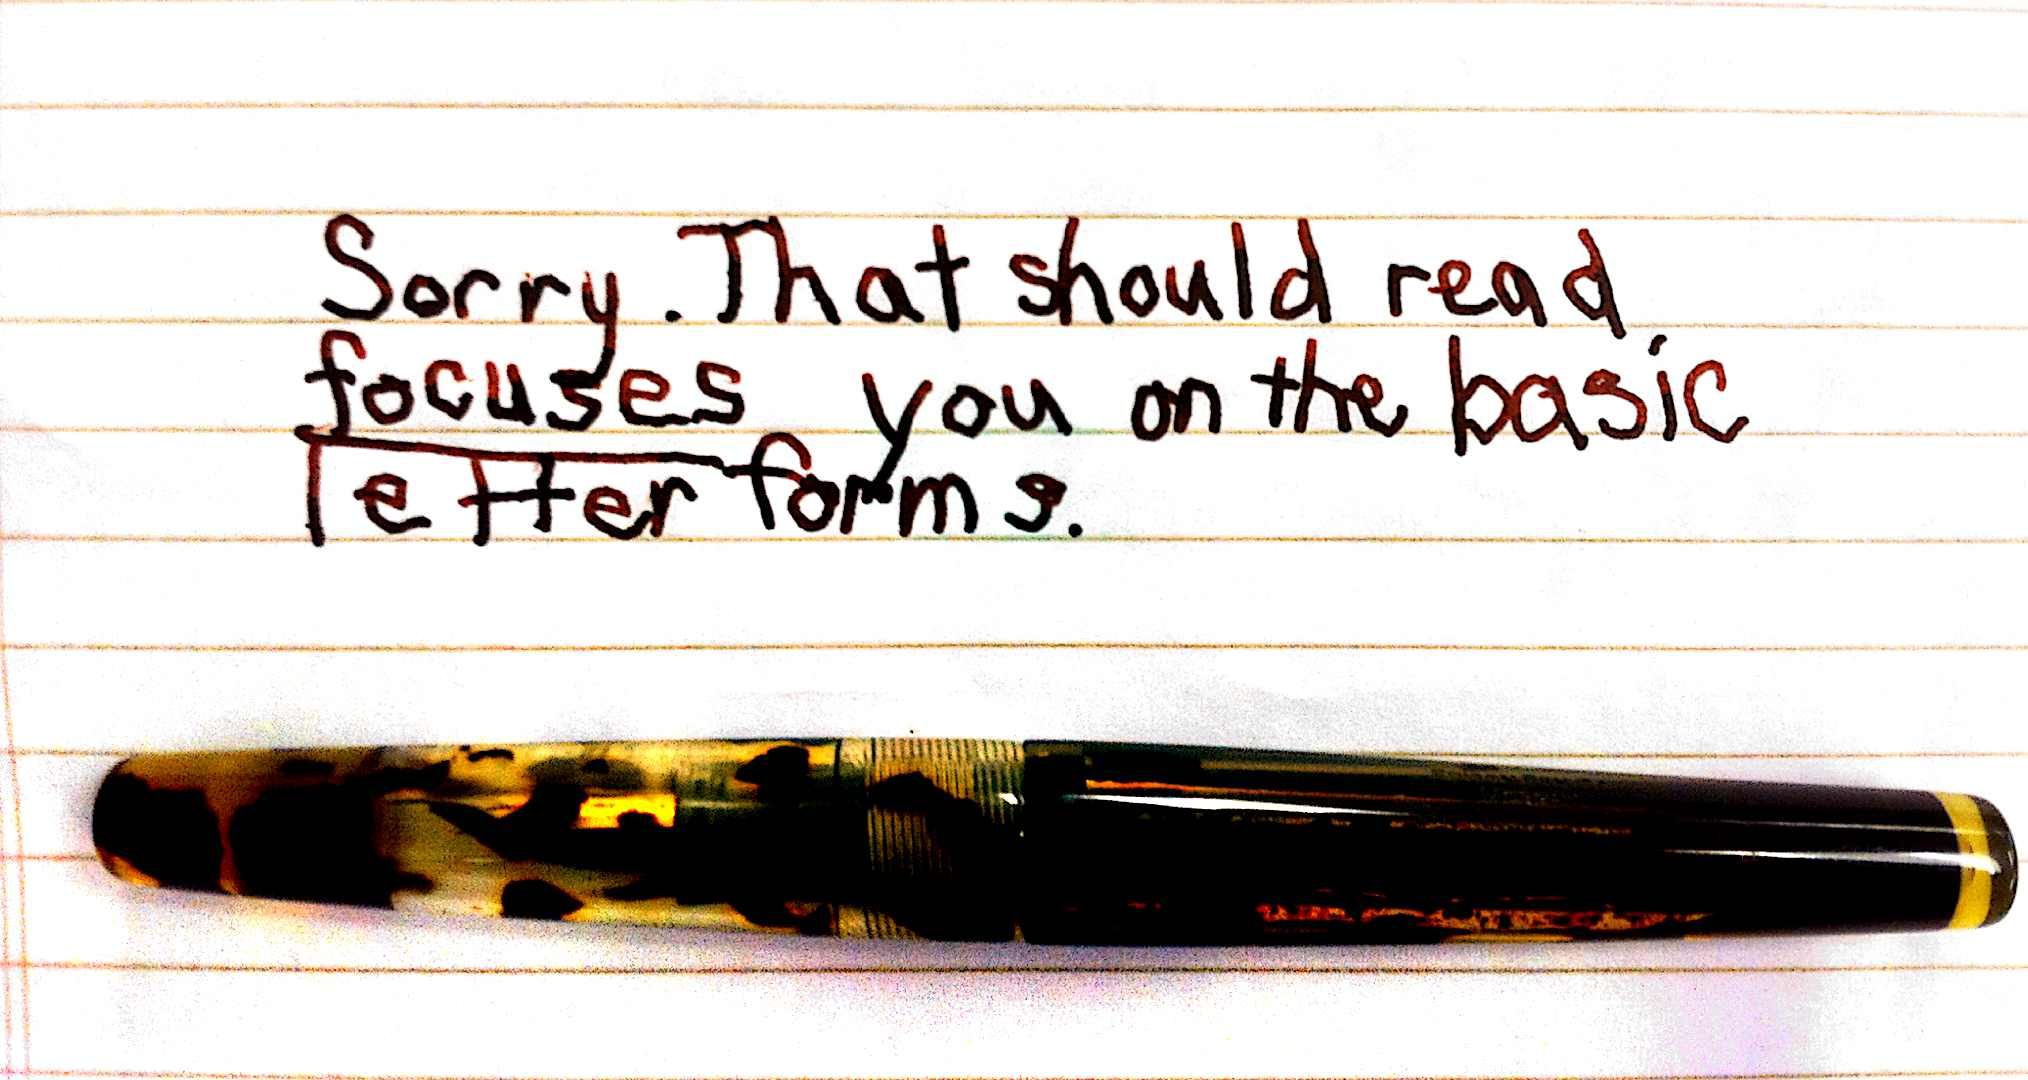 Sorry. That should read
focuses you on the basic
letter forms.